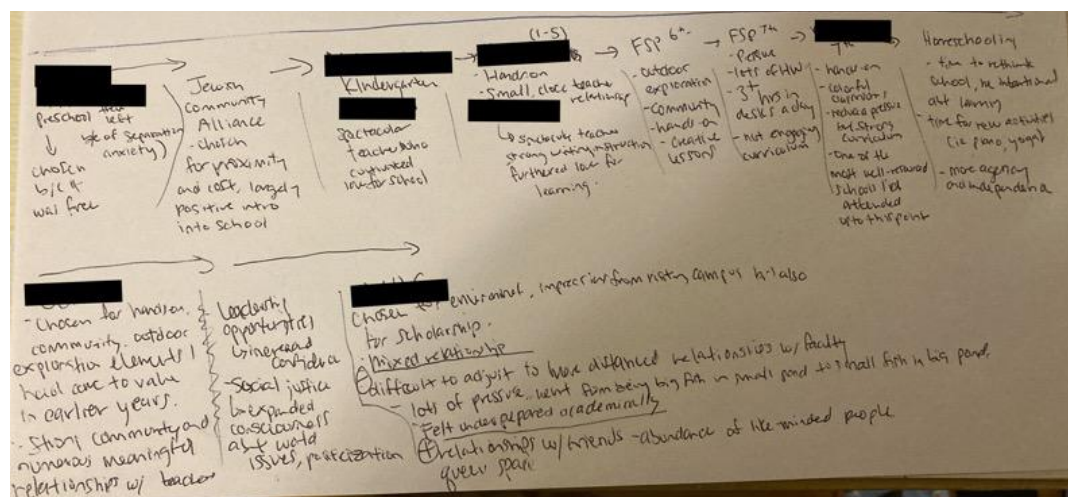 preschool that
left
b/c of separation
anxiety)
chosen
b/c it
was free
Jewish
community
Alliance
- chosen
for proximity
and cost, largely
positive intro
into school
Kindergarten
spectacular
teacher who
love for school
(1-5)
- Hands on
- Small, close teacher
relationship
teacher
strong writing instruction
furthered love for
learning.
FSP 6th
- outdoor
exploration
- community
- hands-on
- creative
lessons
FSP 7th
- lots of HW
- 3+ hrs in
desks a day
- not engaging
curriculum
7th
- hands-on
- colorful
classrooms
curriculum
- One of the
most well-resourced
schools I'd
attended
up to this point
Homeschooling
- time to rethink
school, be intentional
abt learning
- time for new activities
(ie piano, yoga)
- more agency
and independence
- Chosen for hands on,
community, outdoor
exploration elements I
had come to value
in earlier years.
- Strong community and
numerous meaningful
relationships w/ teachers
Leadership
opportunities
↳ increased
confidence
- Social justice
↳ expanded
consciousness
abt world
issues, politicization
Chosen for environment, impression from visiting campus +
also
for scholarship.
- mixed relationship
⊖ difficult to adjust to more distanced relationships w/ faculty
- lots of pressure.. went from being big fish in small pond to small fish in big pond.
- Felt underprepared academically
⊕ relationships w/ friends - abundance of like-minded people
queer space